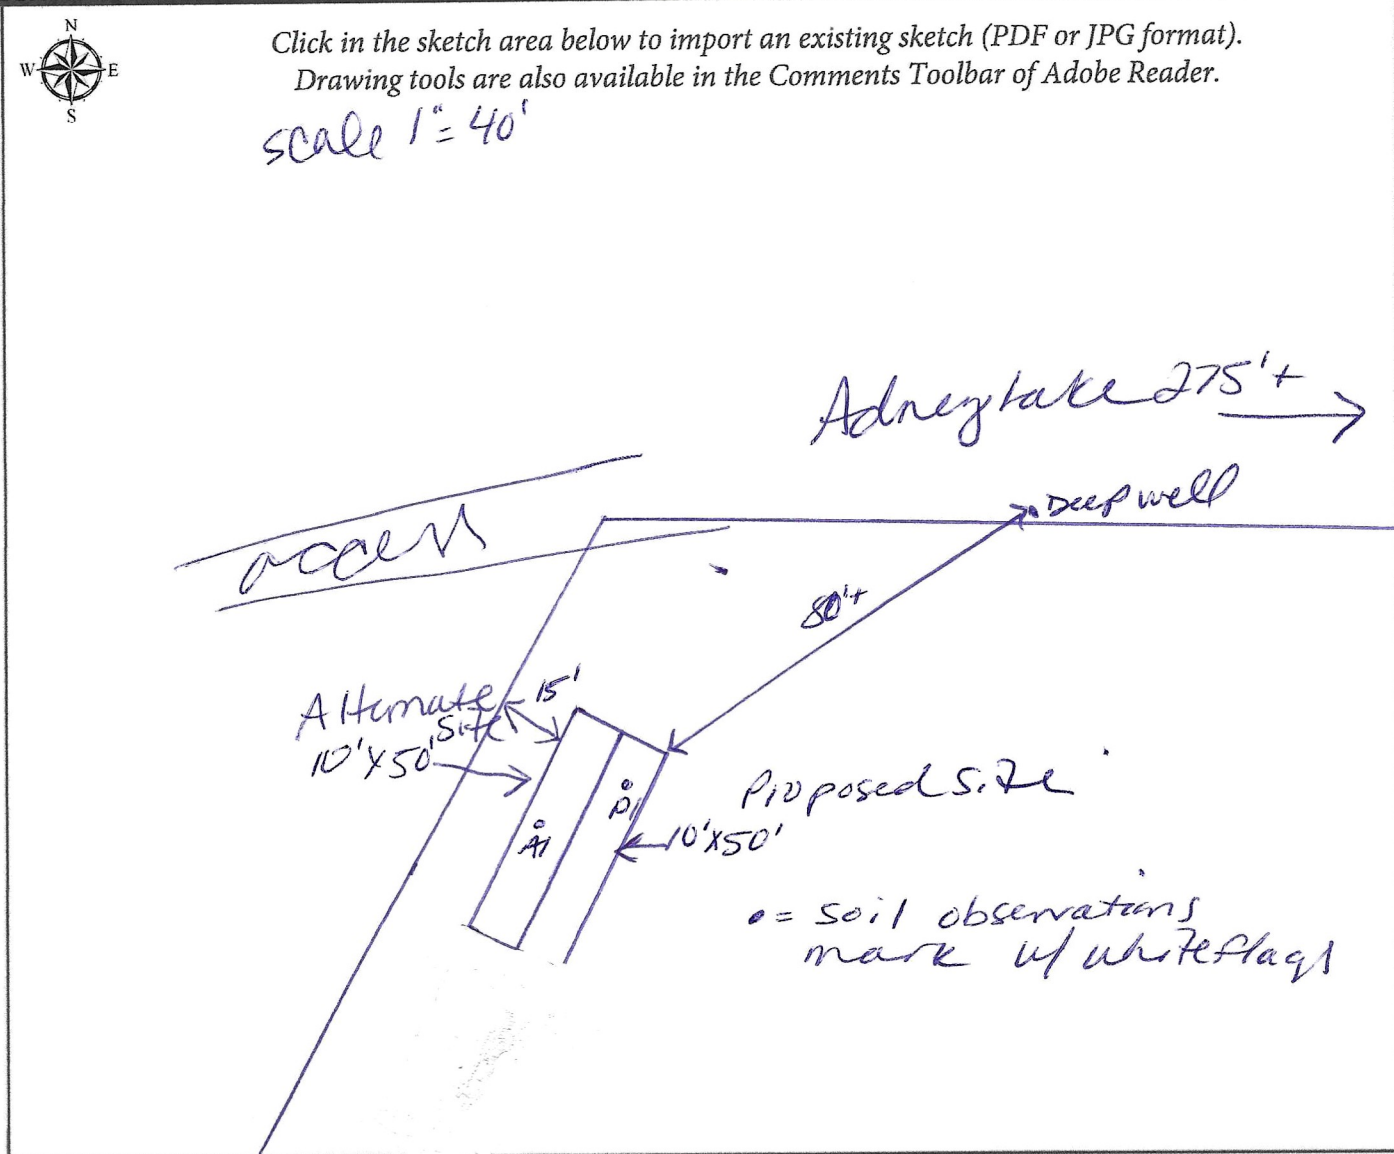 N
W E
S
Click in the sketch area below to import an existing sketch (PDF or JPG format).
Drawing tools are also available in the Comments Toolbar of Adobe Reader.
scale 1"= 40'
Adney Lake 275'+
Deep well
access
80'+
Alternate
Site
15'
10'X50'
Proposed Site
P1
A1
10'X50'
•= soil observations
mark w/ white flags